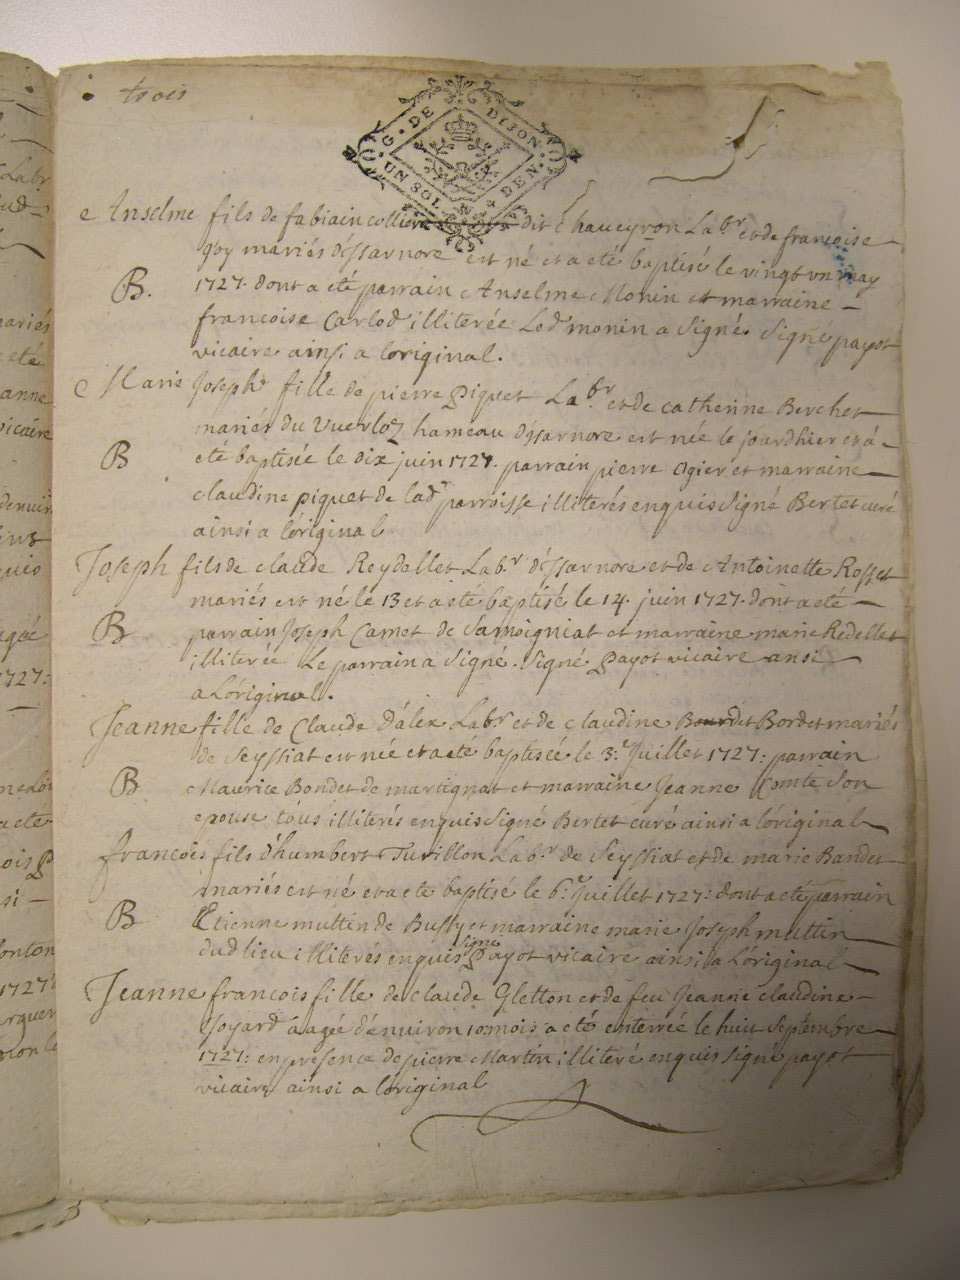 trois
G. DE DIJON
UN SOL DEN.
Anselme fils de fabiain colliere dit chaueyron Labr. et de francoise
Goy mariés d'issarnore est né et a eté baptisé le vingt un may
B. 1727. dont a eté parrain Anselme Monin et marraine
francoise Carlod illiterée Led. monin a signé signé payot
vicaire ainsi a l'original.
Marie Joseph fille de pierre Piquet Labr. et de catherine Berchet
mariés du Vuerloz hameau d'issarnore est née le jourdhier et a
B eté baptisée le dix juin 1727. parrain pierre ogier et marraine
claudine piquet de lad. parroisse illiterés enquis signé Bertet curé
ainsi a l'original
Joseph fils de claude Reydellet Labr. d'issarnore et de Antoinette Rosset
mariés est né le 13 et a eté baptisé le 14. juin 1727. dont a eté
B parrain Joseph Camet de Samoigniat et marraine marie Redellet
illiterée Le parrain a signé. signé payot vicaire ansi
a L'original.
Jeanne fille de Claude Dalex Labr. et de claudine Bourdet Bordet mariés
de Seyssiat est née et a eté baptisée le 3. Juillet 1727: parrain
B Maurice Bondet de martignat et marraine Jeanne Comte son
epouse tous illiterés enquis signé Bertet curé ainsi a l'original
francois fils d'humbert Turillon Labr. de Seyssiat et de marie Bandet
mariés est né et a eté baptisé le 6. Juillet 1727: dont a eté parrain
B Etienne muttin de Bussy et marraine marie Joseph muttin
dud lieu illiterés enquis signé Payot vicaire ainsi a L'original
Jeanne francois fille de claude Gletton et de feu Jeanne claudine
Joyard aagée d'enuiron 10 mois a eté enterrée le huit Septembre
1727: en présence de pierre Martin illiteré enquis signé payot
vicaire ainsi a l'original